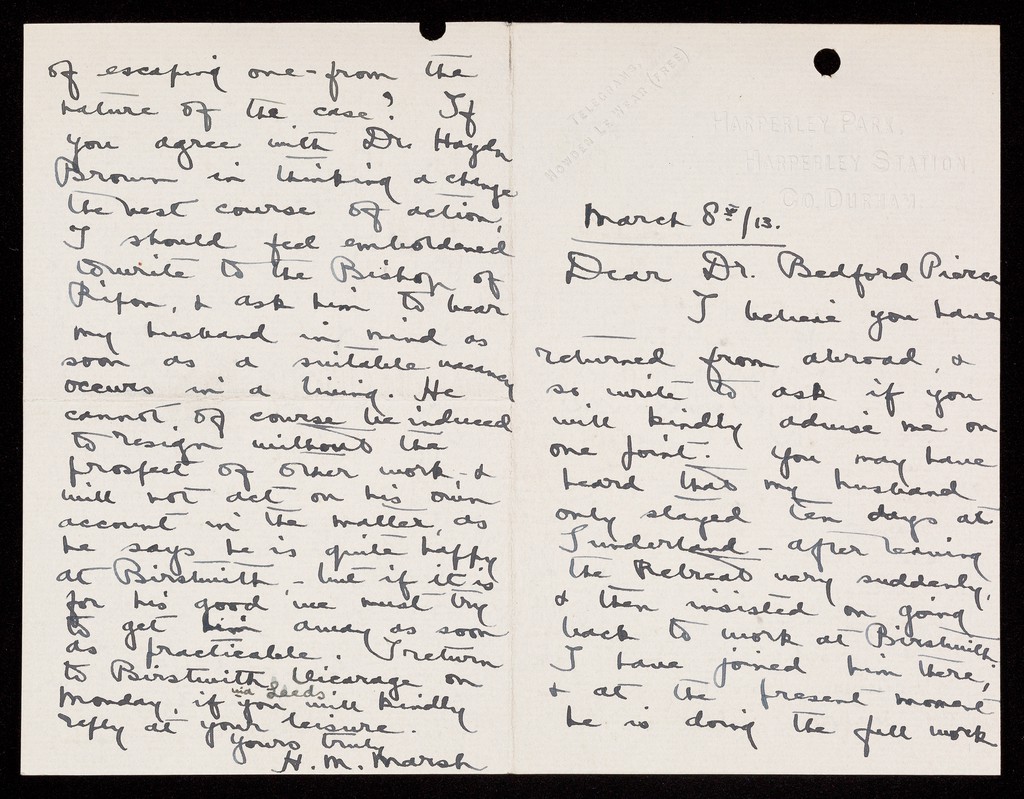 TELEGRAMS,
HOWDEN LE WEAR (FREE)
HARPERLEY PARK,
HARPERLEY STATION,
CO. DURHAM.
March 8th/13.
Dear Dr. Bedford Pierce
I believe you have
returned from abroad, &
so write to ask if you
will kindly advise me on
one point. You may have
heard that my husband
only stayed ten days at
Sunderland - after leaving
the Retreat very suddenly,
& then insisted on going
back to work at Birstwith.
I have joined him there,
& at the present moment
he is doing the full work
of escaping one - from the
nature of the case? If
you agree with Dr. Haydn
Brown in thinking a change
the best course of action,
I should feel emboldened
to write to the Bishop of
Ripon, & ask him to bear
my husband in mind as
soon as a suitable vacancy
occurs in a living. He
cannot of course be induced
to resign without the
prospect of other work, &
will not act on his own
account in the matter, as
he says he is quite happy
at Birstwith - but if it is
for his good we must try
to get him away as soon
as practicable. I return
to Birstwith Vicarage on
via Leeds
Monday, if you will kindly
reply at your leisure.
Yours truly
H. M. Marsh